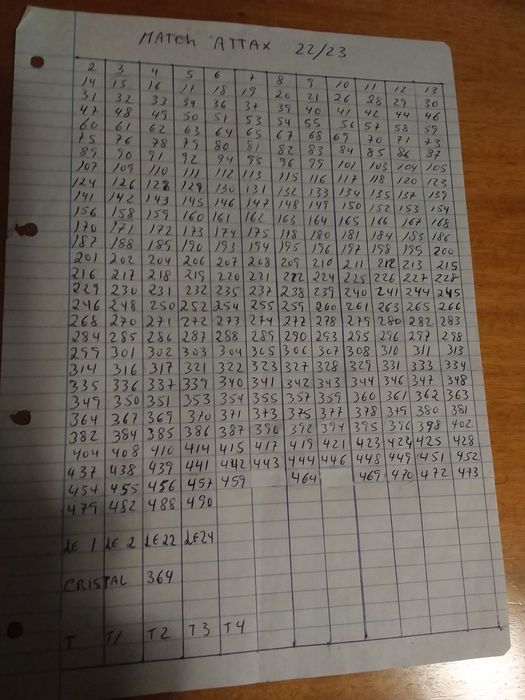 MATCH ATTAX 22/23
2 3 4 5 6 7 8 9 10 11 12 13
14 15 16 17 18 19 20 21 26 28 29 30
31 32 33 34 36 37 39 40 41 42 44 46
47 48 49 50 51 53 54 55 56 57 58 59
60 61 62 63 64 65 67 68 69 70 71 73
75 76 78 79 80 81 82 83 84 85 86 87
89 90 91 92 94 95 96 99 101 103 104 105
107 109 110 111 112 113 115 116 117 118 120 123
124 126 128 129 130 131 132 133 134 135 137 139
141 142 143 145 146 147 148 149 150 152 153 154
156 158 159 160 161 162 163 164 165 166 167 168
170 171 172 173 174 175 178 180 181 184 185 186
187 188 189 190 193 194 195 196 197 198 199 200
201 202 204 206 207 208 209 210 211 212 213 215
216 217 218 219 220 221 222 224 225 226 227 228
229 230 231 232 235 237 238 239 240 241 244 245
246 248 250 252 254 255 259 260 261 263 265 266
268 270 271 272 273 274 277 278 279 280 282 283
284 285 286 287 288 289 290 293 295 296 297 298
299 301 302 303 304 305 306 307 308 310 311 313
314 316 317 321 322 323 327 328 329 331 333 334
335 336 337 339 340 341 342 343 344 346 347 348
349 350 351 353 354 355 357 359 360 361 362 363
364 367 369 370 371 373 375 377 378 379 380 381
382 384 385 386 387 390 392 394 395 396 398 402
404 408 410 414 415 417 419 421 423 424 425 428
437 438 439 441 442 443 444 446 448 449 451 452
454 455 456 457 459 464 469 470 472 473
479 482 488 490
LE 1 LE 2 LE22 LE24
CRISTAL 364
T T1 T2 T3 T4